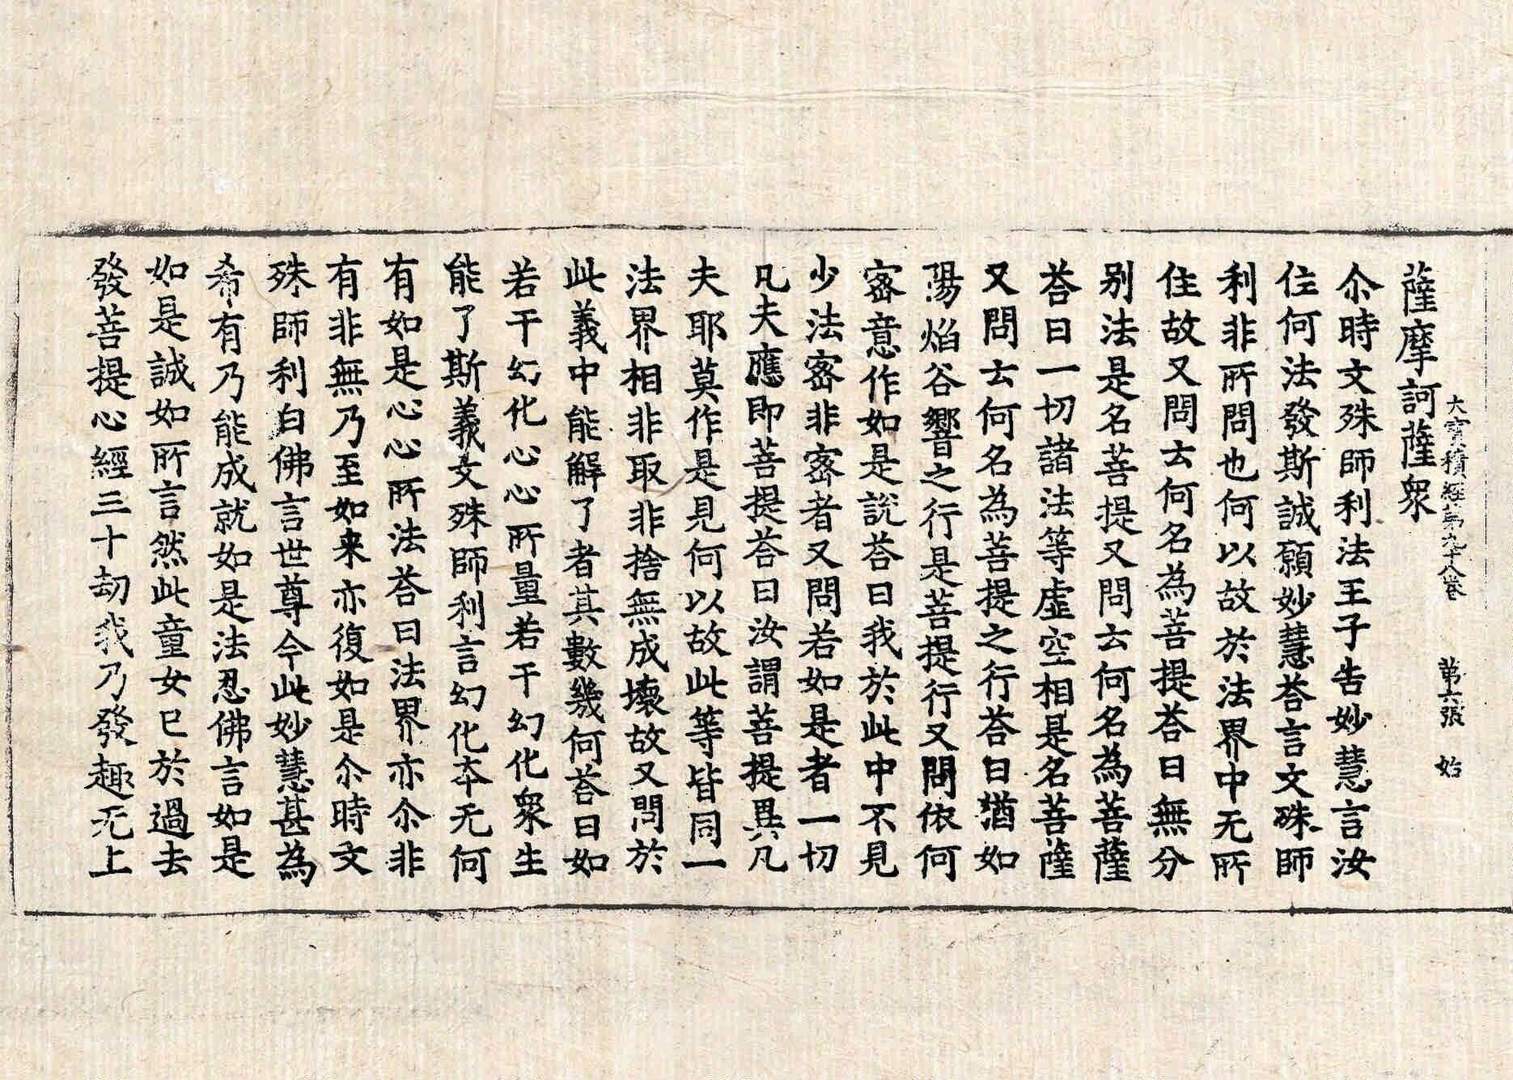 大寶積經第九十八卷　第六張　始
薩摩訶薩衆
尒時文殊師利法王子告妙慧言汝
住何法發斯誠願妙慧荅言文殊師
利非所問也何以故於法界中无所
住故又問云何名為菩提荅曰無分
別法是名菩提又問云何名為菩薩
荅曰一切諸法等虛空相是名菩薩
又問云何名為菩提之行荅曰猶如
陽焰谷響之行是菩提行又問依何
密意作如是說荅曰我於此中不見
少法密非密者又問若如是者一切
凡夫應即菩提荅曰汝謂菩提異凡
夫耶莫作是見何以故此等皆同一
法界相非取非捨無成壞故又問於
此義中能解了者其數幾何荅曰如
若干幻化心心所量若干幻化衆生
能了斯義文殊師利言幻化夲无何
有如是心心所法荅曰法界亦尒非
有非無乃至如来亦復如是尒時文
殊師利白佛言世尊今此妙慧甚為
希有乃能成就如是法忍佛言如是
如是誠如所言然此童女已於過去
發菩提心經三十劫我乃發趣无上